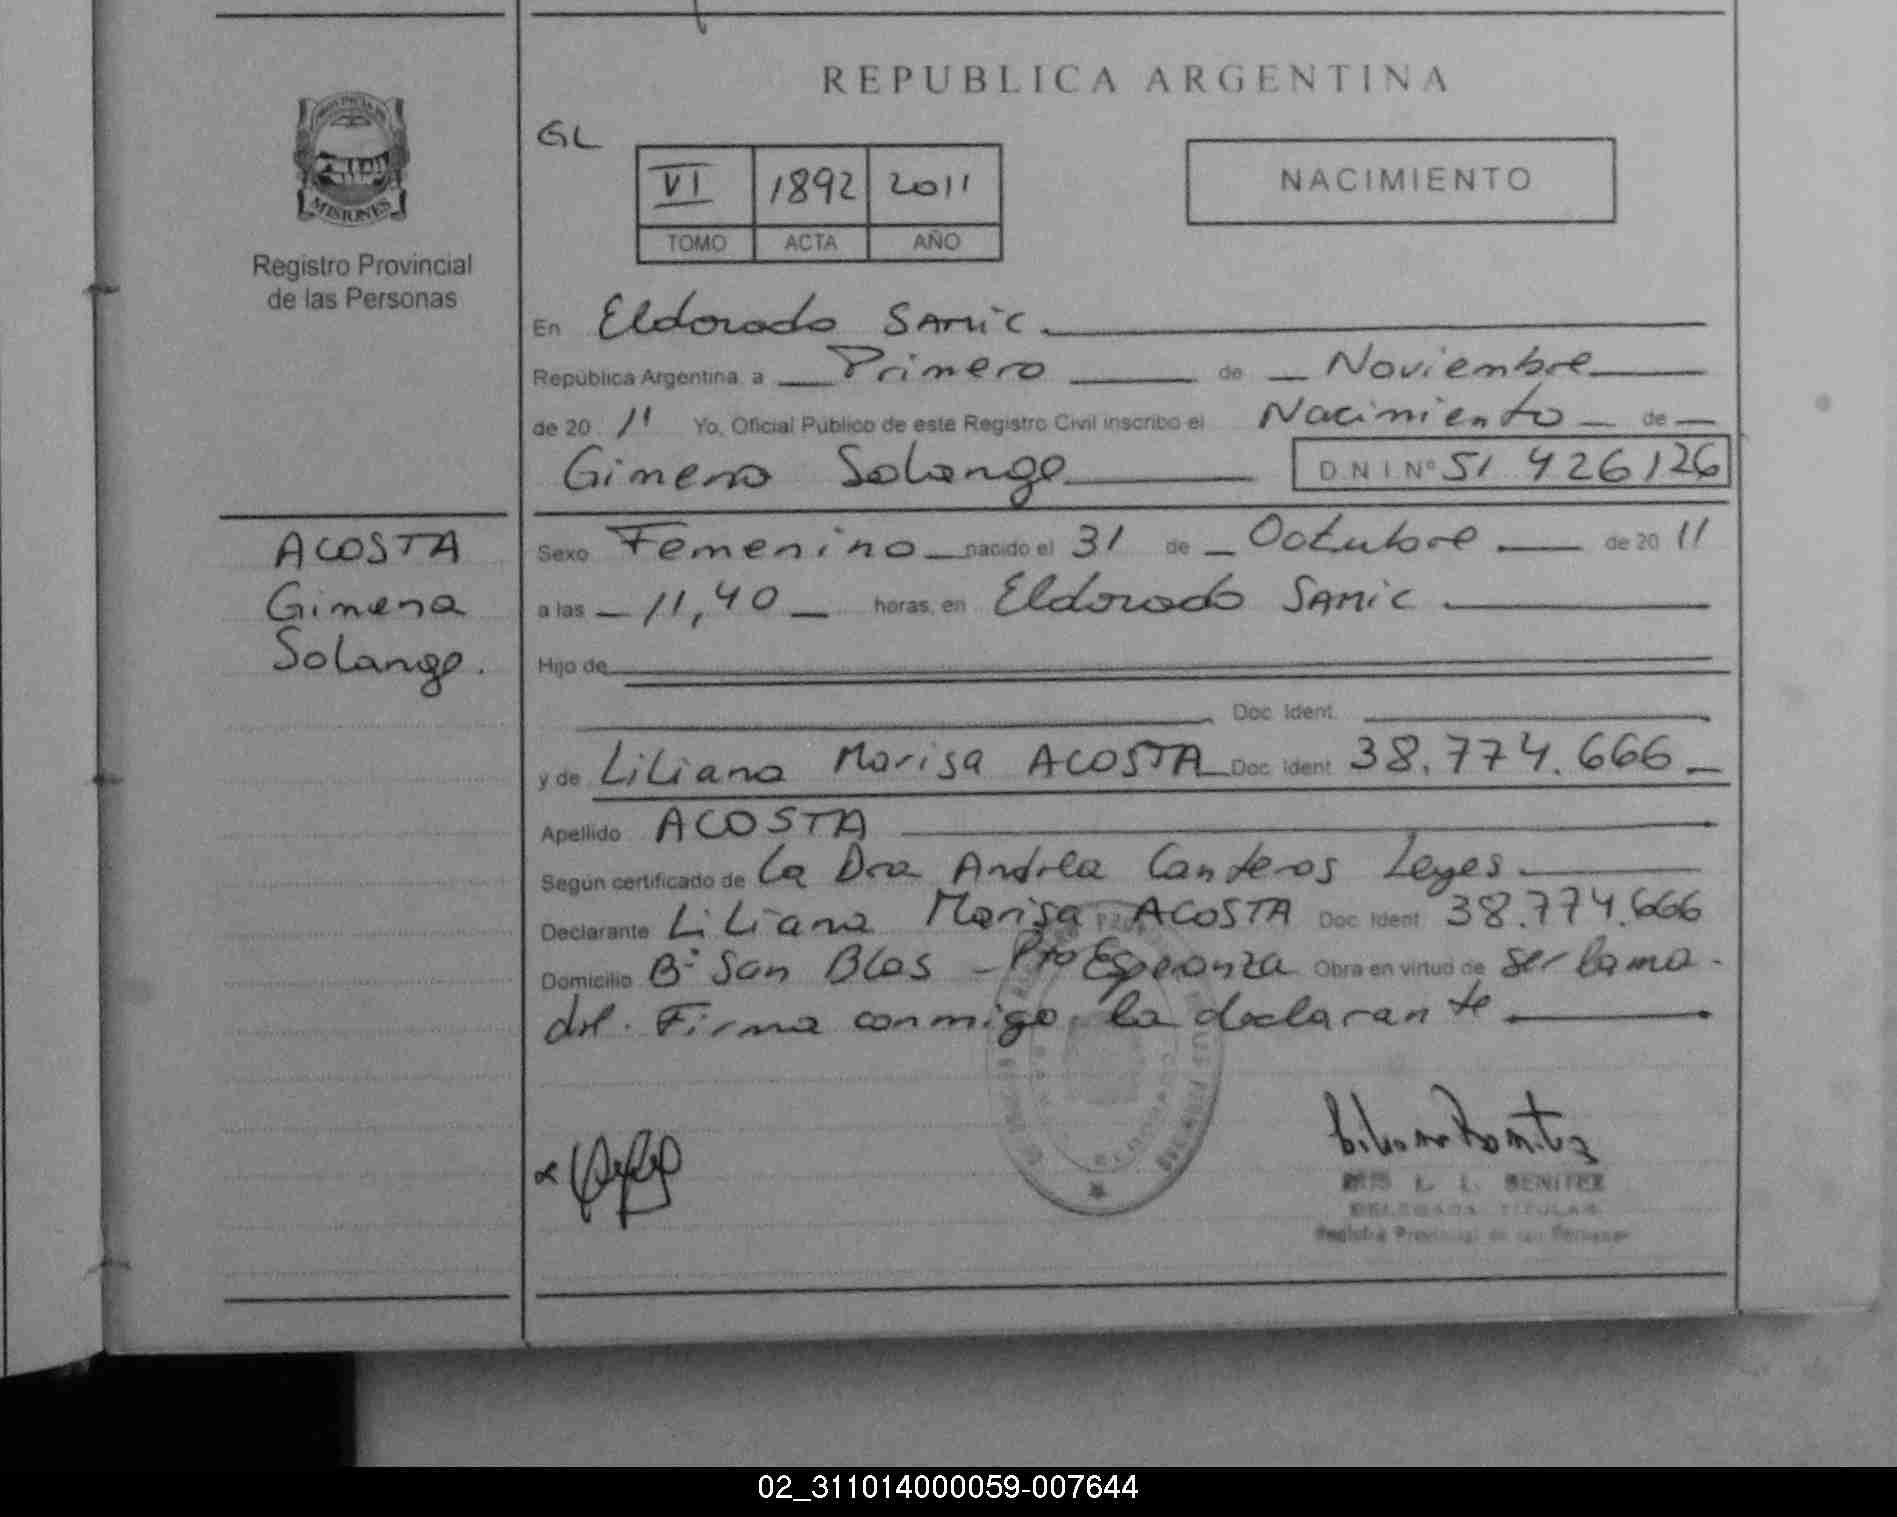 REPUBLICA ARGENTINA
MISIONES
Registro Provincial
de las Personas
GL
VI 1892 2011
TOMO ACTA AÑO
NACIMIENTO
En Eldorado SAMiC
República Argentina, a Primero de Noviembre
de 20 11 Yo, Oficial Público de este Registro Civil inscribo el Nacimiento de
Gimena Solange D.N.I. Nº 51 426126
ACOSTA
Gimena
Solange.
Sexo Femenino nacido el 31 de Octubre de 20 11
a las 11,40 horas, en Eldorado SAMiC
Hijo de
Doc. Ident.
y de Liliana Marisa ACOSTA Doc. Ident. 38.774.666
Apellido ACOSTA
Según certificado de La Dra Andrea Canteros Leyes
Declarante Liliana Marisa ACOSTA Doc. Ident. 38.774.666
Domicilio Bº San Blas - Pto Esperanza Obra en virtud de ser la ma-
dre. Firma conmigo, la declarante
L. L. BENITEZ
DELEGADA TITULAR
Registro Provincial de las Personas
02_311014000059-007644